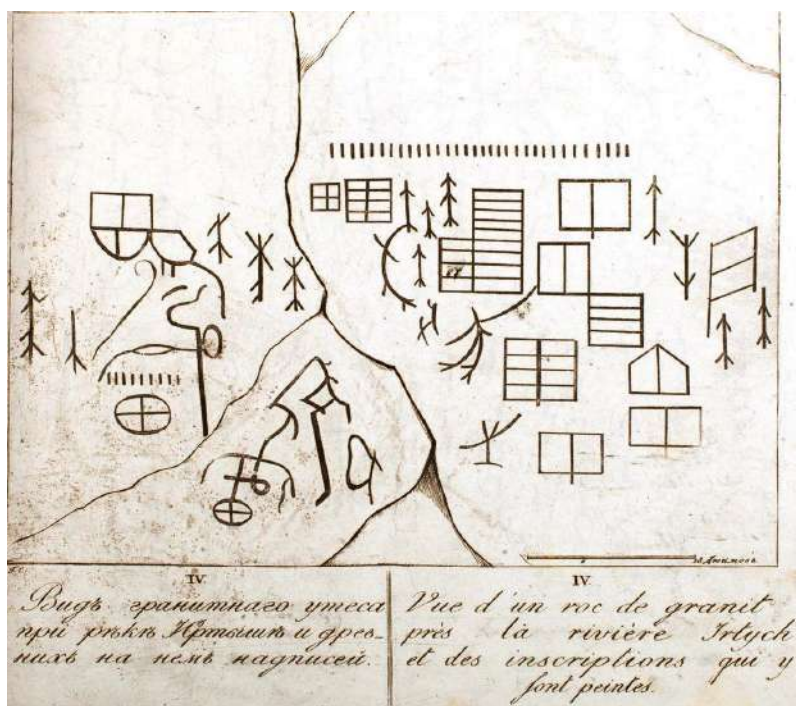 IV.
Видъ гранитнаго утеса
при рѣкѣ Иртышѣ и древ-
нихъ на немъ надписей.
IV.
Vue d'un roc de granit
près la rivière Irtych
et des inscriptions qui y
sont peintes.